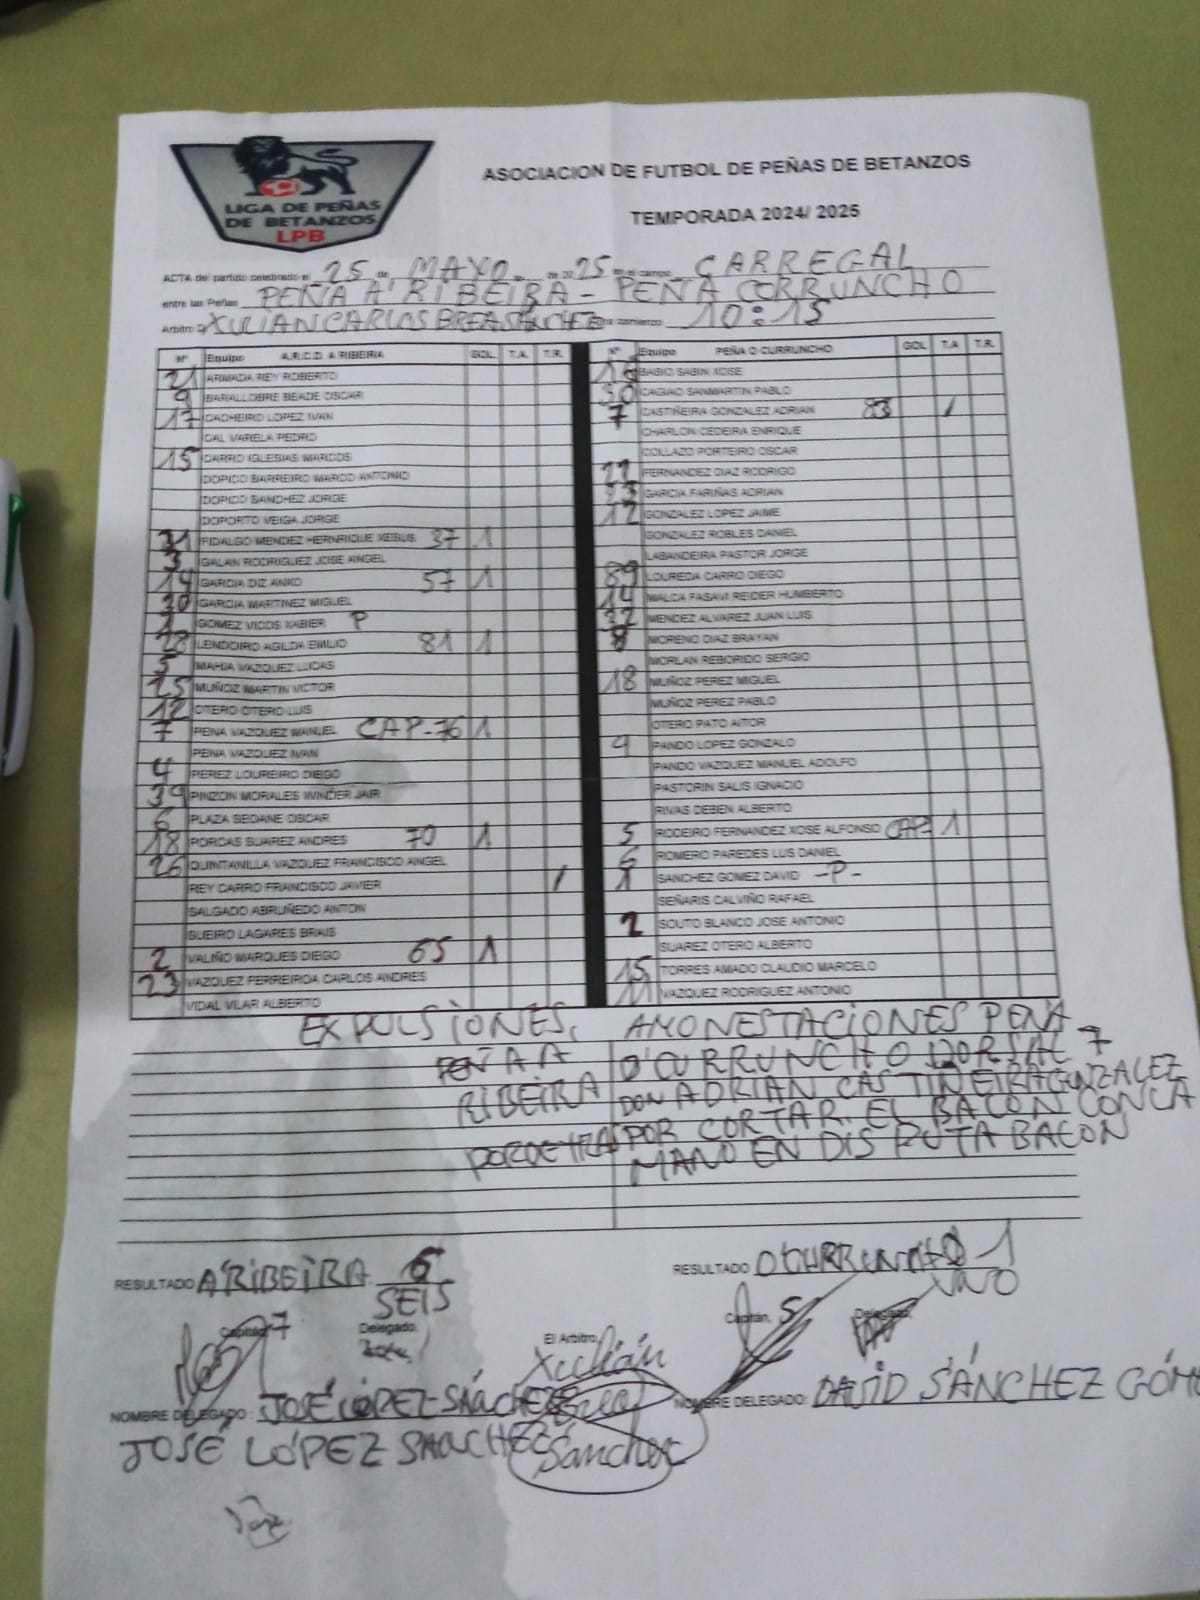 LIGA DE PEÑAS
DE BETANZOS
LPB
ASOCIACION DE FUTBOL DE PEÑAS DE BETANZOS
TEMPORADA 2024/ 2025
ACTA del partido celebrado el 25 de MAYO de 2025 en el campo CARREGAL
entre las Peñas PEÑA A RIBEIRA - PEÑA CORRUNCHO
Arbitro D XULIAN CARLOS BREA SANCHEZ Hora comienzo 10:15
Nº Equipo A.R.C.D. A RIBEIRA GOL T.A. T.R. Nº Equipo PEÑA O CURRUNCHO GOL T.A T.R.
21 ARMADA REY ROBERTO 16 BABIO SABIN XOSE
9 BARALLOBRE BEADE OSCAR 30 CAGIAO SANMARTIN PABLO
17 CACHEIRO LOPEZ IVAN 7 CASTIÑEIRA GONZALEZ ADRIAN 83 /
CAL VARELA PEDRO CHARLON CEDEIRA ENRIQUE
15 CARRO IGLESIAS MARCOS COLLAZO PORTEIRO OSCAR
DOPICO BARREIRO MARCO ANTONIO FERNANDEZ DIAZ RODRIGO
DOPICO SANCHEZ JORGE GARCIA FARIÑAS ADRIAN
DOPORTO VEIGA JORGE 12 GONZALEZ LOPEZ JAIME
31 FIDALGO MENDEZ HERNRIQUE XESUS 37 1 GONZALEZ ROBLES DANIEL
3 GALAN RODRIGUEZ JOSE ANGEL LABANDEIRA PASTOR JORGE
14 GARCIA DIZ ANXO 57 1 89 LOUREDA CARRO DIEGO
30 GARCIA MARTINEZ MIGUEL 14 MALCA PASAVI REIDER HUMBERTO
1 GOMEZ VICOS XABIER P MENDEZ ALVAREZ JUAN LUIS
28 LENDOIRO AGILDA EMILIO 81 1 8 MORENO DIAZ BRAYAN
5 MAHIA VAZQUEZ LUCAS MORLAN REBORIDO SERGIO
25 MUÑOZ MARTIN VICTOR 18 MUÑOZ PEREZ MIGUEL
12 OTERO OTERO LUIS MUÑOZ PEREZ PABLO
7 PENA VAZQUEZ MANUEL CAP-76 1 OTERO PATO AITOR
PENA VAZQUEZ IVAN PANDO LOPEZ GONZALO
4 PEREZ LOUREIRO DIEGO PANDO VAZQUEZ MANUEL ADOLFO
39 PINZON MORALES WINDER JAIR PASTORIN SALIS IGNACIO
6 PLAZA SEOANE OSCAR RIVAS DEBEN ALBERTO
18 PORCAS SUAREZ ANDRES 70 1 5 RODEIRO FERNANDEZ XOSE ALFONSO CAP- 1
26 QUINTANILLA VAZQUEZ FRANCISCO ANGEL 6 ROMERO PAREDES LUIS DANIEL
REY CARRO FRANCISCO JAVIER / 1 SANCHEZ GOMEZ DAVID -P-
SALGADO ABRUÑEDO ANTON SEÑARIS CALVIÑO RAFAEL
SUEIRO LAGARES BRAIS 2 SOUTO BLANCO JOSE ANTONIO
2 VALIÑO MARQUES DIEGO 65 1 SUAREZ OTERO ALBERTO
23 VAZQUEZ FERREIROA CARLOS ANDRES 15 TORRES AMADO CLAUDIO MARCELO
VIDAL VILAR ALBERTO 11 VAZQUEZ RODRIGUEZ ANTONIO
EXPULSIONES. AMONESTACIONES PEÑA
PEÑA A O'CURRUNCHO DORSAL 7
RIBEIRA DON ADRIAN CASTIÑEIRA GONZALEZ
POR CORTAR EL BALON CON LA
MANO EN DISPUTA BALON
RESULTADO A RIBEIRA 6 RESULTADO O CURRUNCHO 1
SEIS UNO
Capitán 7 Delegado El Arbitro Capitán, 5 Delegado
Xulián
NOMBRE DELEGADO: JOSÉ LÓPEZ SÁNCHEZ Brea NOMBRE DELEGADO: DAVID SÁNCHEZ GÓM
JOSÉ LÓPEZ SÁNCHEZ Sanchez